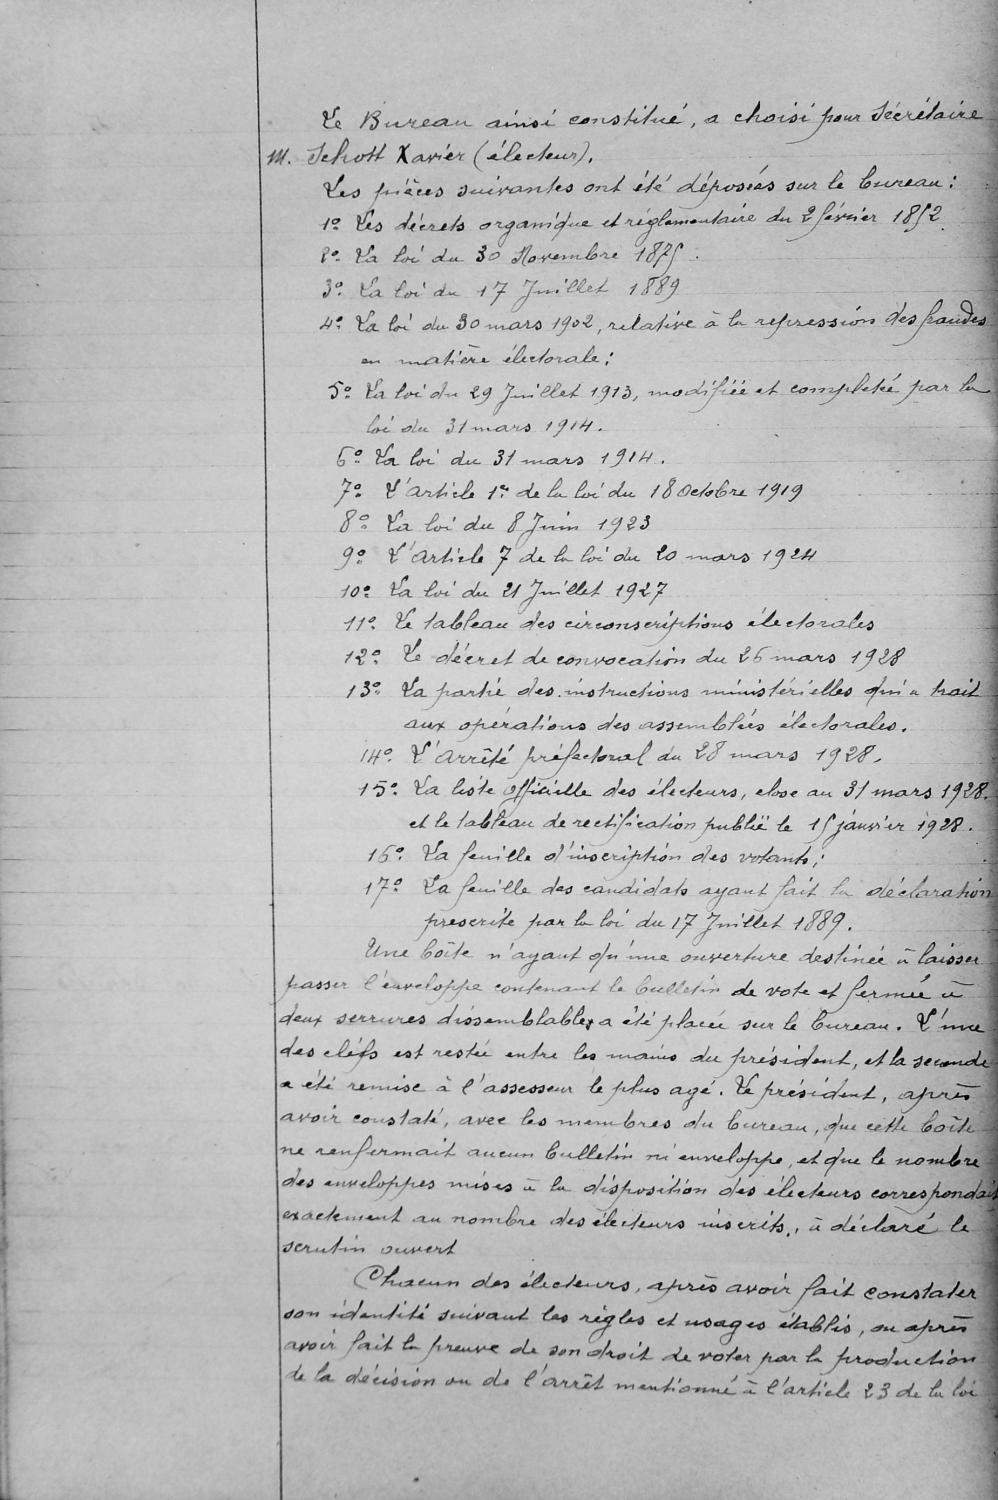 Le Bureau ainsi constitué, a choisi pour Sécrétaire
M. Schott Xavier (électeur).
Les pièces suivantes ont été déposées sur le bureau:
1° Les décrets organique et réglementaire du 2 février 1852.
2° La loi du 30 Novembre 1875.
3° La loi du 17 Juillet 1889
4° La loi du 30 mars 1902, relative à la repression des fraudes
en matière électorale;
5° La loi du 29 Juillet 1913, modifiée et completée par la
loi du 31 mars 1914.
6° La loi du 31 mars 1914.
7° L'article 1er de la loi du 18 Octobre 1919
8° La loi du 8 Juin 1923
9° L'Article 7 de la loi du 20 mars 1924
10° La loi du 21 Juillet 1927
11° Le tableau des circonscriptions électorales
12° Le décret de convocation du 26 mars 1928
13° La partie des instructions ministérielles qui a trait
aux opérations des assemblées électorales.
14° L'Arrêté préfectoral du 28 mars 1928.
15° La liste officielle des électeurs, close au 31 mars 1928.
et le tableau de rectification publié le 15 janvier 1928.
16° La feuille d'inscription des votants;
17° La feuille des candidats ayant fait la déclaration
prescrite par la loi du 17 Juillet 1889.
Une boîte n'ayant qu'une ouverture destinée à laisser
passer l'enveloppe contenant le bulletin de vote et fermée à
deux serrures dissemblables a été placée sur le bureau. L'une
des clefs est restée entre les mains du président, et la seconde
a été remise à l'assesseur le plus agé. Le président, après
avoir constaté, avec les membres du bureau, que cette boîte
ne renfermait aucun bulletin ni enveloppe, et que le nombre
des enveloppes mises à la disposition des électeurs correspondait
exactement au nombre des électeurs inscrits, à déclaré le
scrutin ouvert
Chacun des électeurs, après avoir fait constater
son identité suivant les règles et usages établis, ou après
avoir fait la preuve de son droit de voter par la production
de la décision ou de l'arrêt mentionné à l'article 23 de la loi